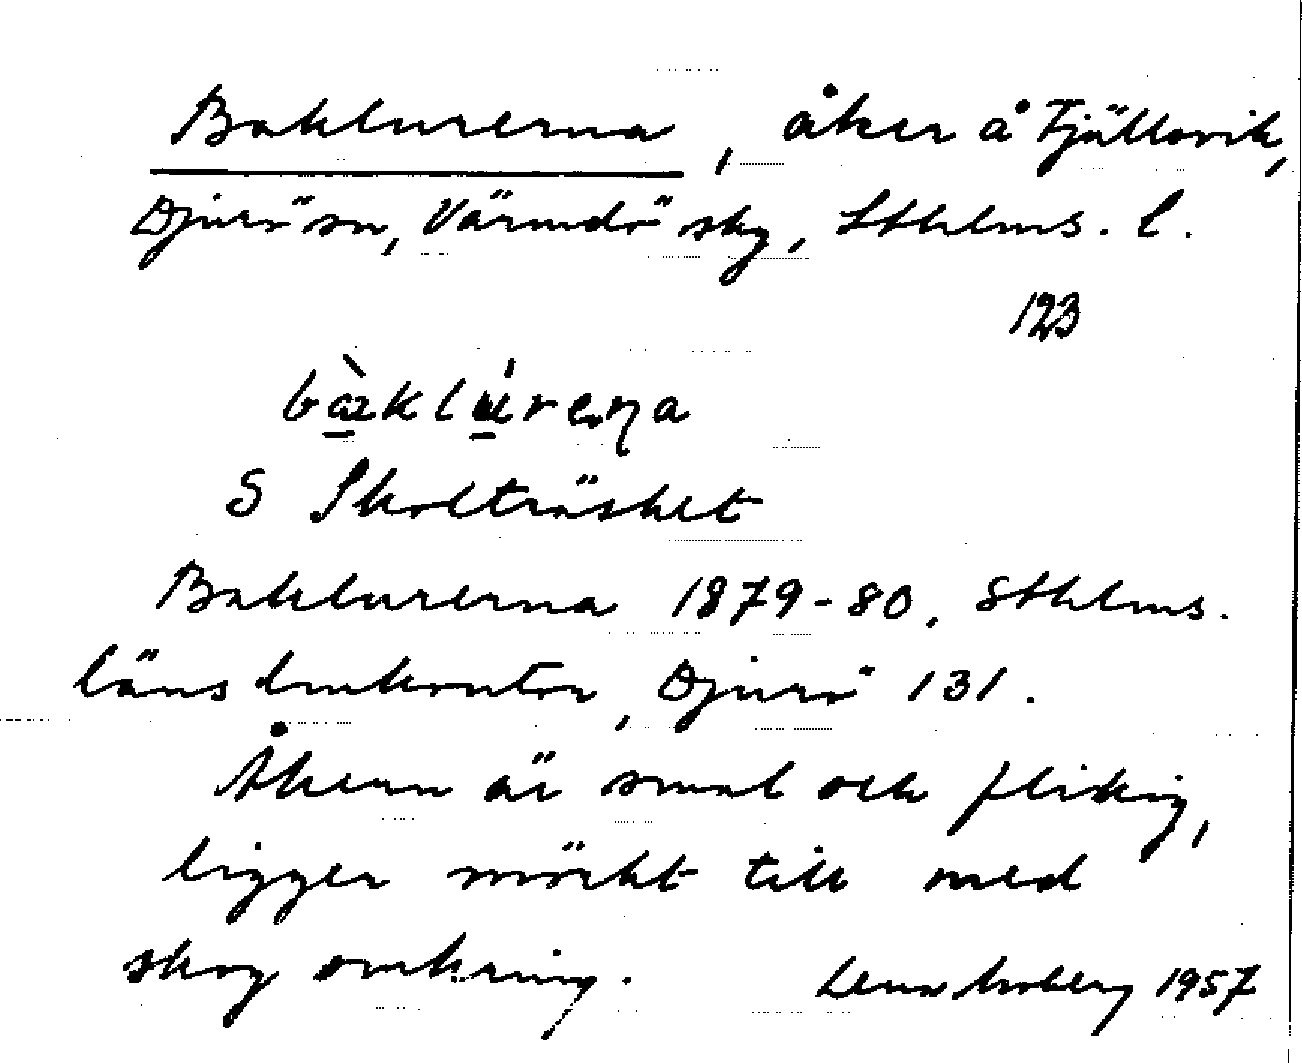 Baklurerna, åker å Fjällsvik,
Djurö sn, Värmdö skg, Sthlms. l.
123
S Skolträsket
Baklurerna 1879-80, Sthlms.
läns lmkontor, Djurö 131.
Åkern är smal och flikig,
ligger mörkt till med
skog omkring.
Moberg 1957